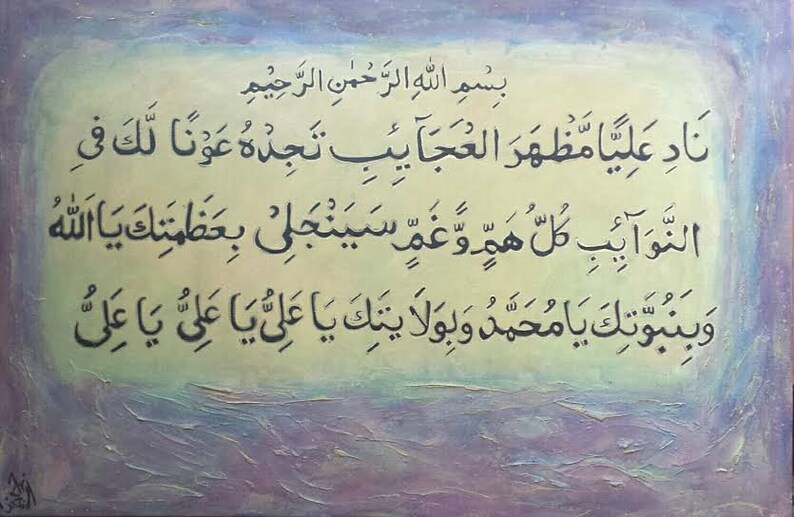 بِسْمِ اللهِ الرَّحْمٰنِ الرَّحِيْمِ
نَادِ عَلِيًّا مَّظْهَرَ الْعَجَآئِبِ تَجِدْهُ عَوْنًا لَّكَ فِی
النَّوَآئِبِ كُلُّ هَمٍّ وَّغَمٍّ سَيَنْجَلِیْ بِعَظَمَتِكَ يَا اَللّٰهُ
وَبِنَبُوَّتِكَ يَا مُحَمَّدُ وَبِوَلَايَتِكَ يَا عَلِیُّ يَا عَلِیُّ يَا عَلِیُّ